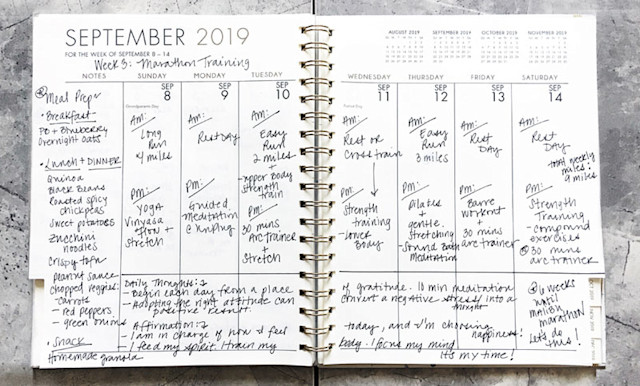 SEPTEMBER 2019
FOR THE WEEK OF SEPTEMBER 8 – 14
Week 5: Marathon Training
AUGUST 2019
SEPTEMBER 2019
OCTOBER 2019
NOVEMBER 2019
NOTES
Meal Prep
• Breakfast
PB + Blueberry
Overnight oats
• Lunch + DINNER
Quinoa
Black Beans
Roasted spicy
chickpeas
Sweet potatoes
Zucchini
noodles
Crispy tofu
Peanut sauce
chopped veggies:
- carrots
- red peppers
- green onions
• Snack
Homemade granola
SUNDAY
SEP
8
Grandparents Day
Am:
Long
Run
4 miles
Pm:
YOGA
Vinyasa
Flow +
Stretch
MONDAY
SEP
9
Am:
Rest DAY
Pm:
Guided
Meditation
@
TUESDAY
SEP
10
AM:
Easy
Run
2 miles
+
upper Body
Strength
train
PM:
30 mins
Arc Trainer
+
Stretch
WEDNESDAY
SEP
11
Patriot Day
Am:
Rest or
Cross train
Pm:
Strength
training
- Lower
Body
THURSDAY
SEP
12
Am:
Easy
Run
3 miles
Pm:
Pilates
+
gentle
Stretching
- Sound Bath
Meditation
FRIDAY
SEP
13
Am:
Rest
DAY
Pm:
Barre
workout
+ 30 mins
arc trainer
SATURDAY
SEP
14
Am:
Rest
DAY
* total weekly
miles:
9 miles
Pm:
Strength
Training
- compound
exercises
30 mins
arc trainer
Daily Thoughts:
- Begin each day from a place of gratitude. 10 min meditation
- Adopting the right attitude can convert a negative stress into a
positive result.
Affirmation:
- I am in charge of how I feel today, and I'm choosing happiness!
- I feed my spirit. I train my body. I focus my mind
It's my time!
6 weeks
until
malibu
marathon
Let's do
this!